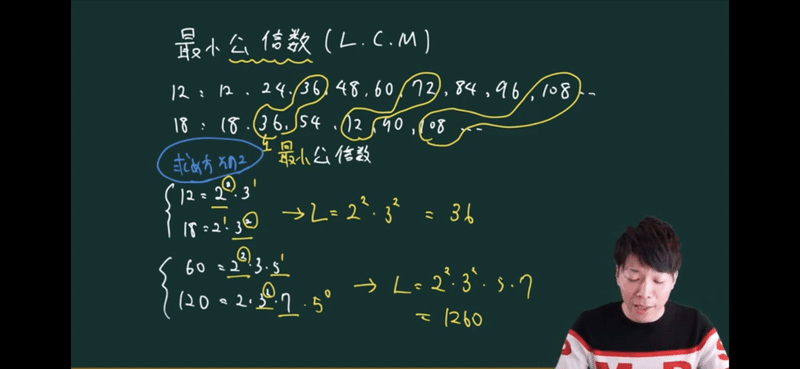 最小公倍数(L.C.M)
12:12.24.36,48,60,72,84,96,108…
18:18.36,54,12,90,108…
最小公倍数
12=2²·3¹
18=2¹·3² →L=2²·3²=36
60=2²·3·5¹
120=2·3²·7·5⁰ → L=2²·3²·5·7
=1260